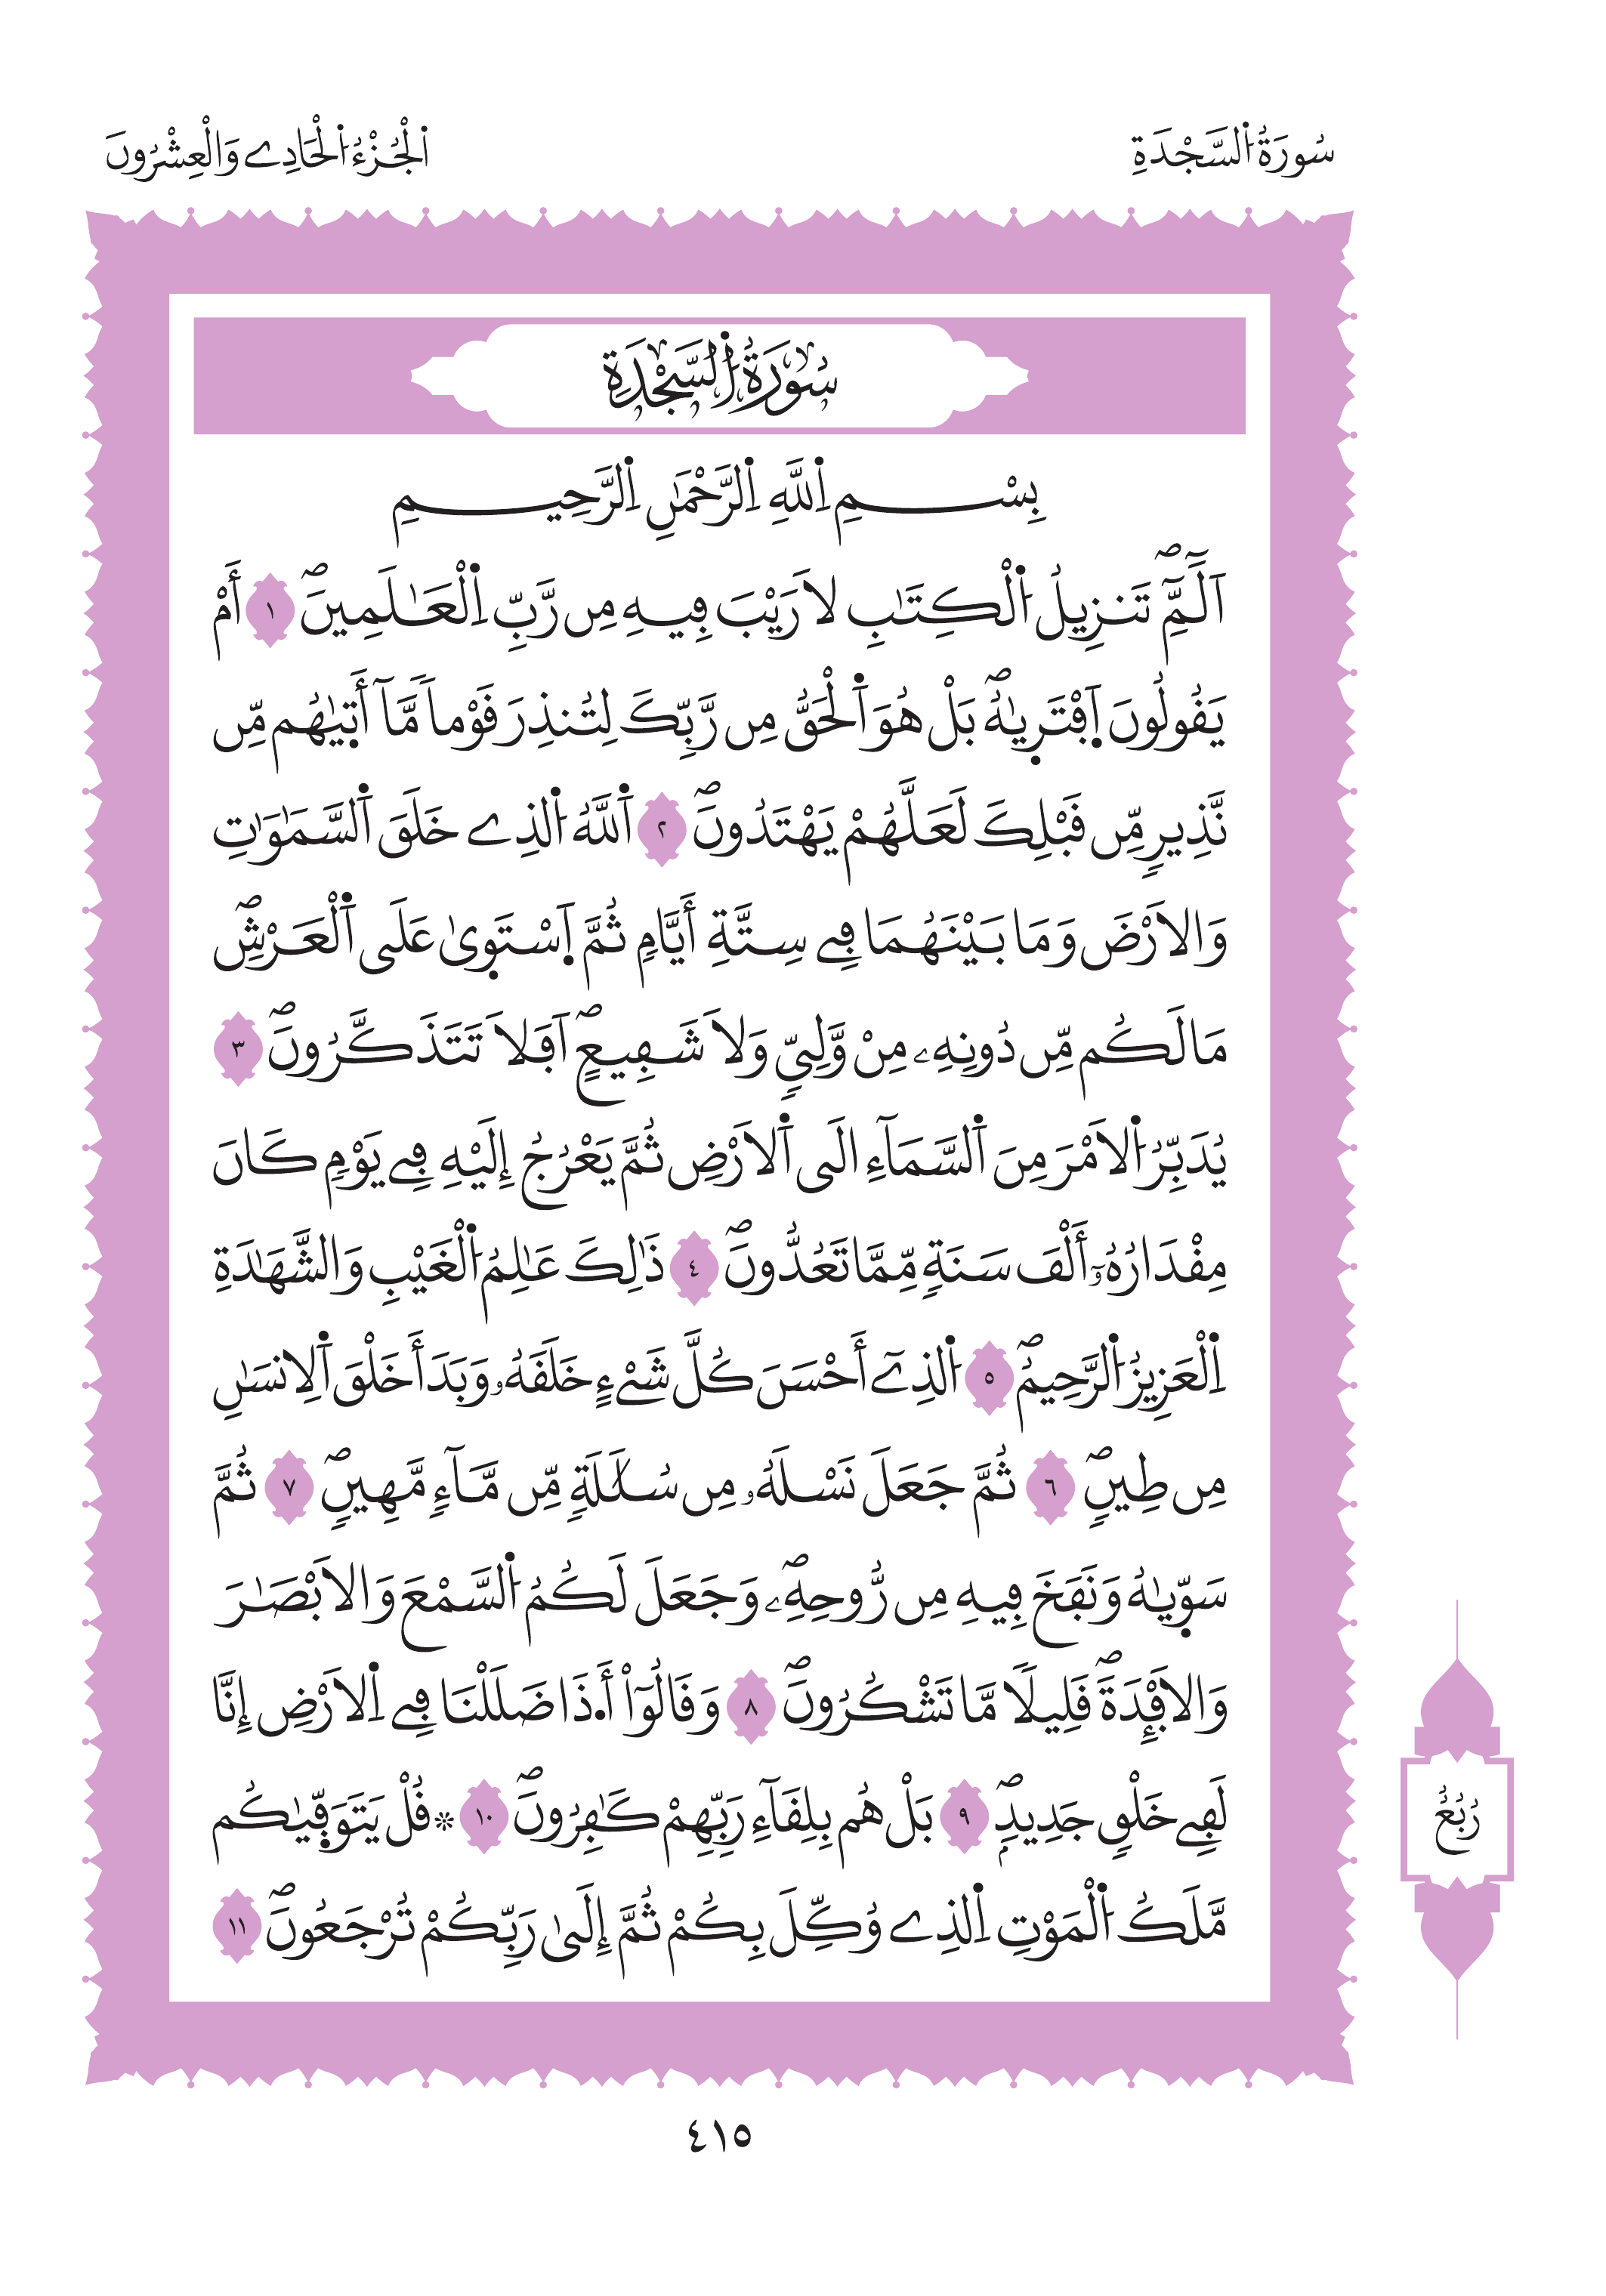 سُورَةُ اُ۬لسَّجْدَةِ
اَ۬لْجُزْءُ اُ۬لْحَادِے وَالْعِشْرُونَ
سُورَةُ اُ۬لسَّجْدَةِ
بِسْمِ اِ۬للَّهِ اِ۬لرَّحْمَٰنِ اِ۬لرَّحِيمِ
أَلَٓمِّٓۖ تَنزِيلُ اُ۬لْكِتَٰبِ لَا رَيْبَ فِيهِ مِن رَّبِّ اِ۬لْعَٰلَمِينَۖ ١ أَمْ
يَقُولُونَ اَ۪فْتَر۪يٰهُۖ بَلْ هُوَ اَ۬لْحَقُّ مِن رَّبِّكَ لِتُنذِرَ قَوْماٗ مَّآ أَت۪يٰهُم مِّن
نَّذِيرٖ مِّن قَبْلِكَ لَعَلَّهُمْ يَهْتَدُونَۖ ٢ اَ۬للَّهُ اُ۬لذِے خَلَقَ اَ۬لسَّمَٰوَٰتِ
وَالَارْضَ وَمَا بَيْنَهُمَا فِے سِتَّةِ أَيَّامٖ ثُمَّ اَ۪سْتَو۪يٰ عَلَي اَ۬لْعَرْشِۖ
مَا لَكُم مِّن دُونِهِۦ مِنْ وَّلِيّٖ وَلَا شَفِيعٍۖ اَفَلَا تَتَذَكَّرُونَۖ ٣
يُدَبِّرُ اُ۬لَامْرَ مِنَ اَ۬لسَّمَآءِ اِلَي اَ۬لَارْضِ ثُمَّ يَعْرُجُ إِلَيْهِ فِے يَوْمٖ كَانَ
مِقْدَارُهُۥٓ أَلْفَ سَنَةٖ مِّمَّا تَعُدُّونَۖ ٤ ذَٰلِكَ عَٰلِمُ اُ۬لْغَيْبِ وَالشَّهَٰدَةِ
اِ۬لْعَزِيزُ اُ۬لرَّحِيمُۖ ٥ اُ۬لذِےٓ أَحْسَنَ كُلَّ شَےْءٍ خَلَقَهُۥ وَبَدَأَ خَلْقَ اَ۬لِانسَٰنِ
مِن طِينٖۖ ٦ ثُمَّ جَعَلَ نَسْلَهُۥ مِن سُلَٰلَةٖ مِّن مَّآءٖ مَّهِينٖۖ ٧ ثُمَّ
سَوّ۪يٰهُ وَنَفَخَ فِيهِ مِن رُّوحِهِۦۖ وَجَعَلَ لَكُمُ اُ۬لسَّمْعَ وَالَابْصَٰرَ
وَالَافْـِٕدَةَۖ قَلِيلاٗ مَّا تَشْكُرُونَۖ ٨ وَقَالُوٓاْ أَ.ذَا ضَلَلْنَا فِے اِ۬لَارْضِ إِنَّا
لَفِے خَلْقٖ جَدِيدِۢۖ ٩ بَلْ هُم بِلِقَآءِ رَبِّهِمْ كَٰفِرُونَۖ ١٠ ۞ قُلْ يَتَوَفّ۪يٰكُم
مَّلَكُ اُ۬لْمَوْتِ اِ۬لذِے وُكِّلَ بِكُمْ ثُمَّ إِلَيٰ رَبِّكُمْ تُرْجَعُونَۖ ١١
رُبُعُ
٤١٥